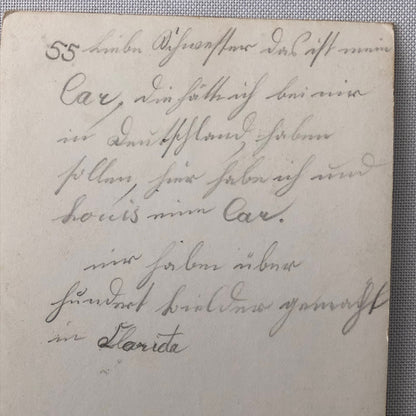 55 Liebe Schwester das ist mein
Car, die hätte ich bei mir
in Deutschland haben
sollen, hier habe ich und
Louis eine Car.
mir haben über
hundert bielder gemacht
in Llarida